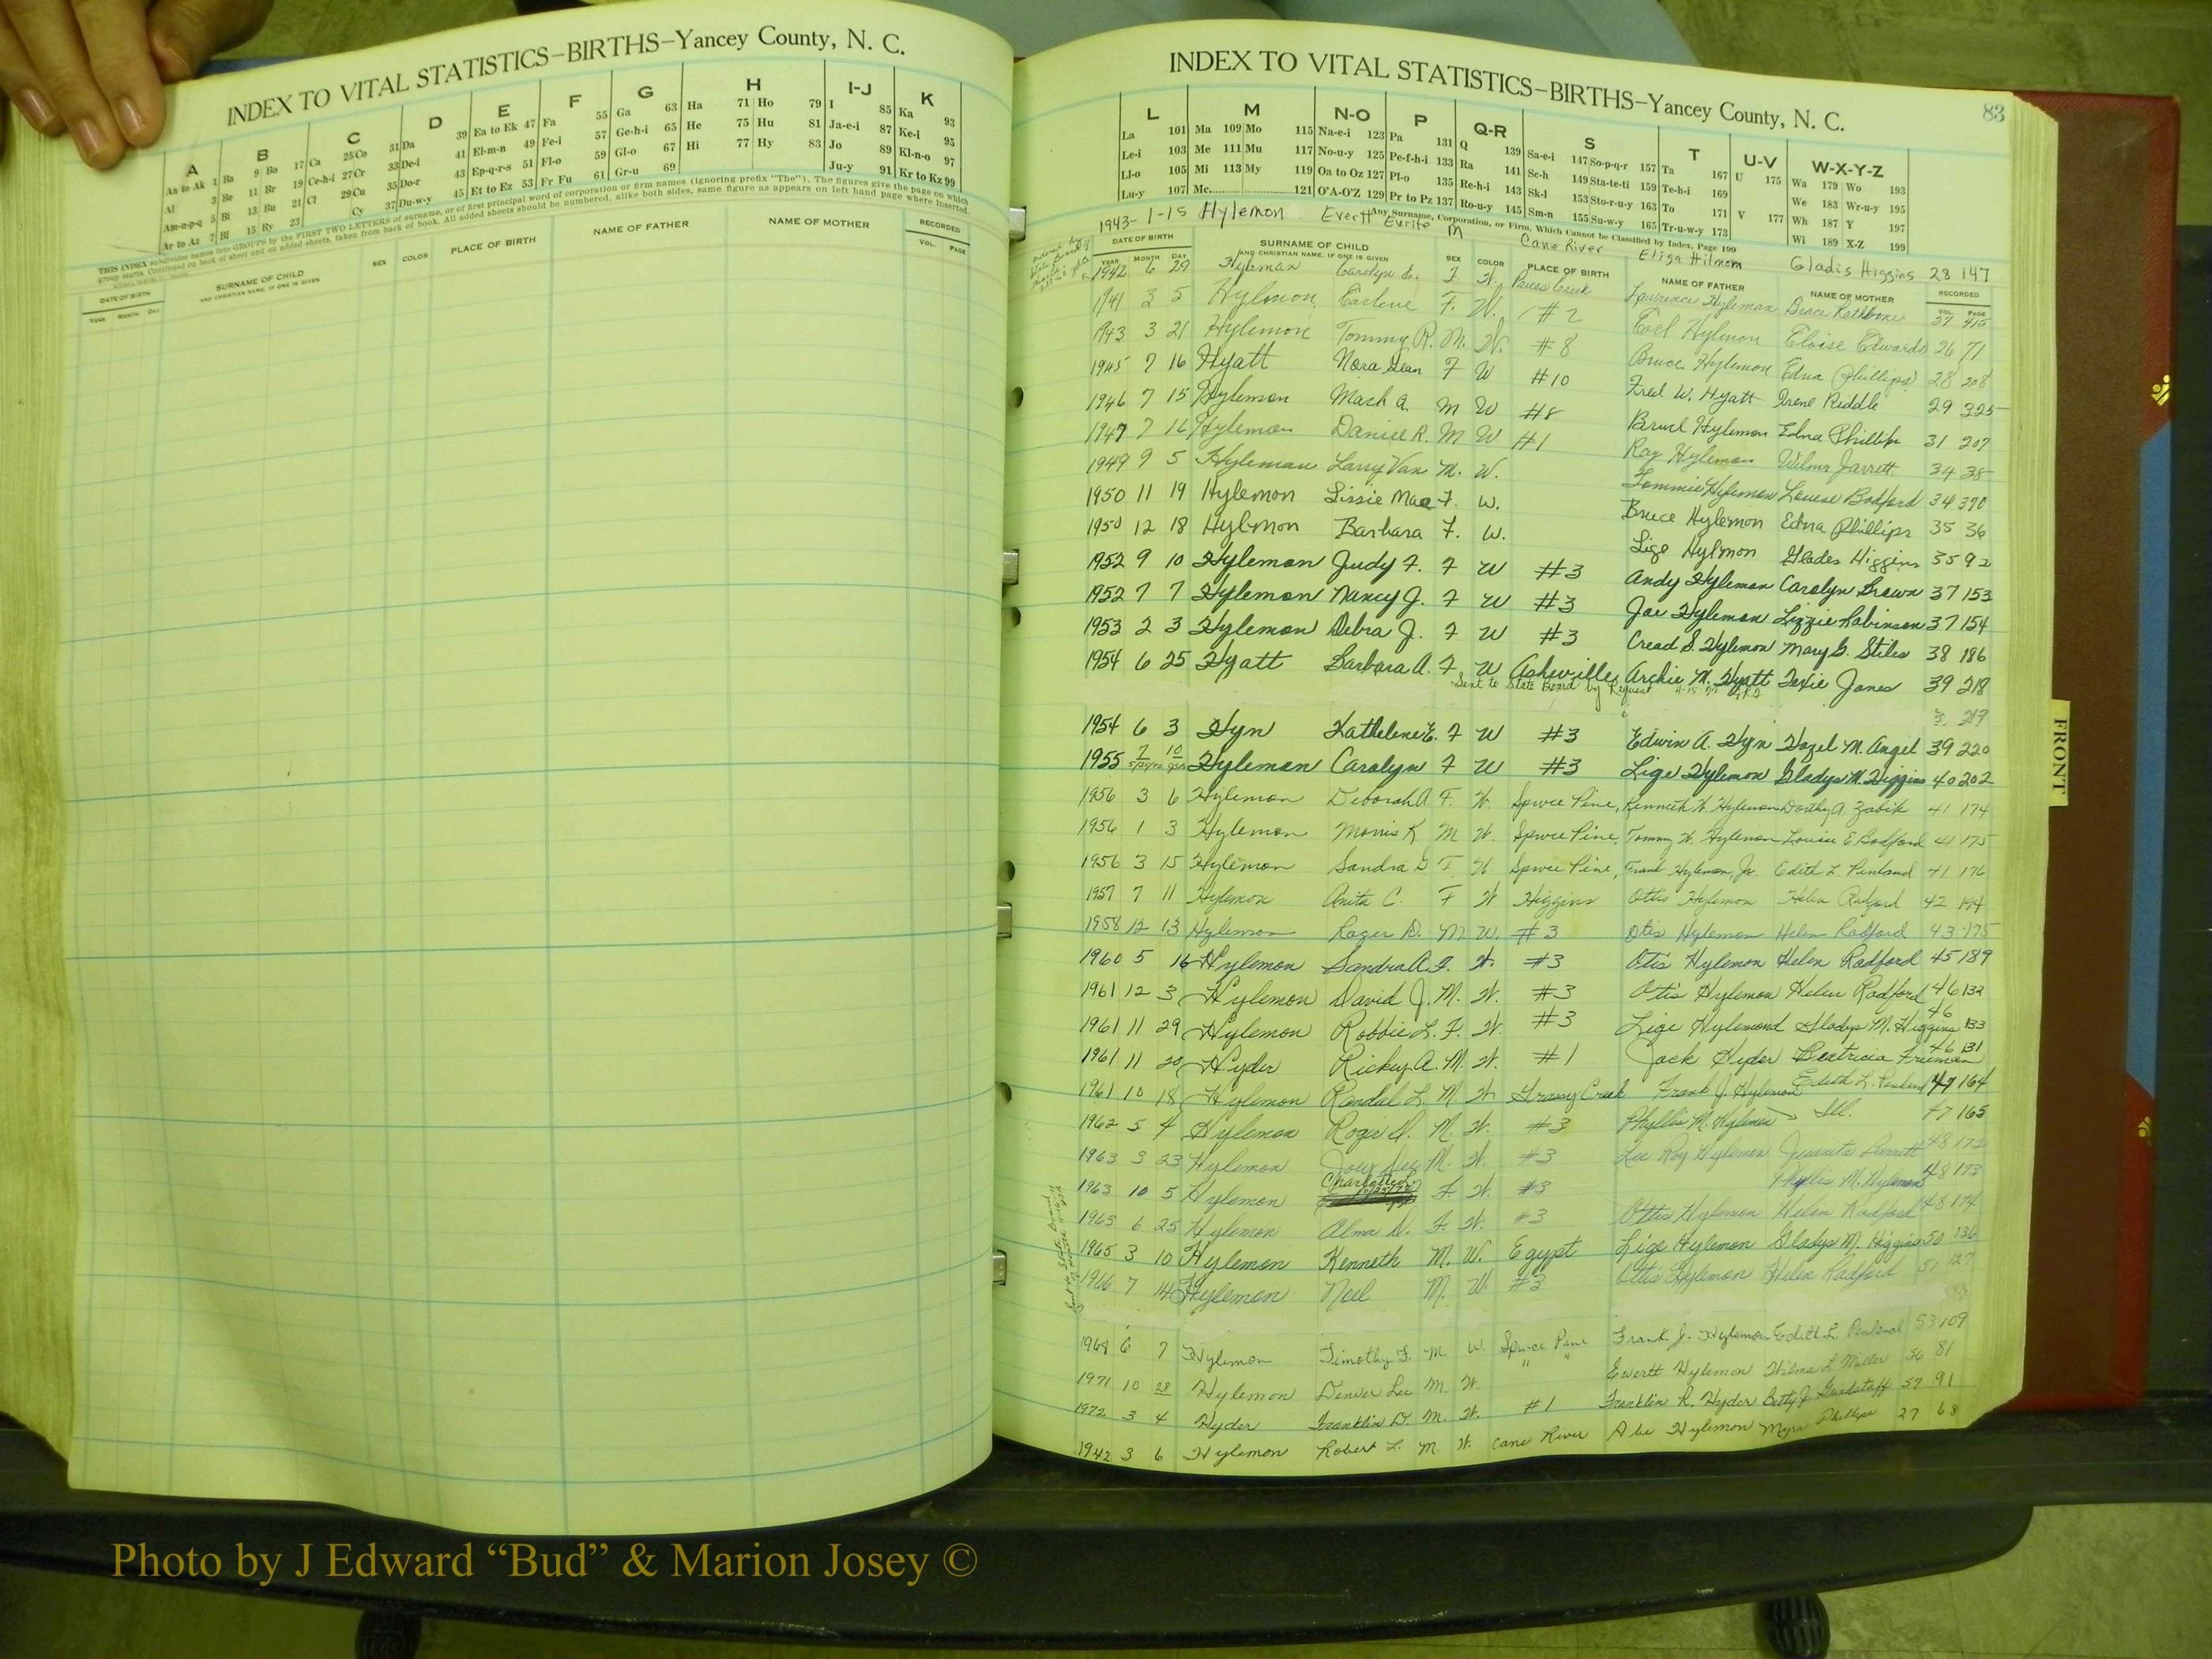 INDEX TO VITAL STATISTICS–BIRTHS–Yancey County, N. C.
A B C D E F G H I-J K
Aa to Ak 1 Ba 9 Bo 17 Ca 25 Co 31 Da 39 Ea to Ek 47 Fa 55 Ga 63 Ha 71 Ho 79 I 85 Ka 93
Al 3 Be 11 Br 19 Ce-h-i 27 Cr 33 De-i 41 El-m-n 49 Fe-i 57 Ge-h-i 65 He 75 Hu 81 Ja-e-i 87 Ke-i 95
Am-n-p-q 5 Bi 13 Bu 21 Cl 29 Cu 35 Do-r 43 Ep-q-r-s 51 Fl-o 59 Gl-o 67 Hi 77 Hy 83 Jo 89 Kl-n-o 97
Ar to Az 7 Bl 15 By 23 Cy 37 Du-w-y 45 Et to Ez 53 Fr Fu 61 Gr-u 69 Ju-y 91 Kr to Kz 99
THIS INDEX subdivides names into GROUPS by the FIRST TWO LETTERS of surname, or of first principal word of corporation or firm names (ignoring prefix "The"). The figures give the page on which
group starts. Continued on back of sheet and on added sheets, taken from back of book. All added sheets should be numbered, alike both sides, same figure as appears on left hand page where inserted.
DATE OF BIRTH SURNAME OF CHILD SEX COLOR PLACE OF BIRTH NAME OF FATHER NAME OF MOTHER RECORDED
YEAR MONTH DAY AND CHRISTIAN NAME, IF ONE IS GIVEN VOL. PAGE
INDEX TO VITAL STATISTICS–BIRTHS–Yancey County, N. C. 83
L M N-O P Q-R S T U-V W-X-Y-Z
La 101 Ma 109 Mo 115 Na-e-i 123 Pa 131 Q 139 Sa-e-i 147 So-p-q-r 157 Ta 167 U 175 Wa 179 Wo 193
Le-i 103 Me 111 Mu 117 No-u-y 125 Pe-f-h-i 133 Ra 141 Sc-h 149 Sta-te-ti 159 Te-h-i 169 We 183 Wr-u-y 195
Ll-o 105 Mi 113 My 119 Oa to Oz 127 Pl-o 135 Re-h-i 143 Sk-l 153 Sto-r-u-y 163 To 171 V 177 Wh 187 Y 197
Lu-y 107 Mc 121 O'A-O'Z 129 Pr to Pz 137 Ro-u-y 145 Sm-n 155 Su-w-y 165 Tr-u-w-y 173 Wi 189 X-Z 199
Any Surname, Corporation, or Firm, Which Cannot be Classified by Index, Page 199
1943-1-15 Hylemon Evertt Eurito M Cane River Eliga Hilmon Gladis Higgins 28 147
DATE OF BIRTH SURNAME OF CHILD SEX COLOR PLACE OF BIRTH NAME OF FATHER NAME OF MOTHER RECORDED
YEAR MONTH DAY AND CHRISTIAN NAME, IF ONE IS GIVEN VOL. PAGE
1942 6 29 Hyleman Carolyn F. W. Lawrence Hyleman 27 415
1941 3 5 Hylmon Earlene F. W. #2 Earl Hylmon Eloise Edwards 26 71
1943 3 21 Hylemon Tommy R. M. W. #8 Bruce Hylemon Edna (Phillips) 28 208
1945 7 16 Hyatt Nora Jean F W #10 Fred W. Hyatt Irene Riddle 29 325
1946 7 15 Hylemon Mack A. M W #8 Hylemon Edna Phillips 31 207
1947 7 16 Hylemon Daniel R. M W #1 Roy Hylemon Wilma Jarrett 34 38
1949 9 5 Hyleman Larry Van M. W. Tommie Hylemon Louise Radford 34 390
1950 11 19 Hylemon Lissie Mae F. W. Bruce Hylemon Edna Phillips 35 36
1950 12 18 Hylmon Barbara F. W. Lige Hylmon Glades Higgins 35 92
1952 9 10 Hylemon Judy F. F W #3 Andy Hylemon Carolyn Brown 37 153
1952 7 7 Hylemon Nancy J. F W #3 Joe Hylemon Lizzie Robinson 37 154
1953 2 3 Hylemon Debra J. F W #3 Cread S. Hylemon Mary G. Stiles 38 186
1954 6 25 Hyatt Barbara A. F W Asheville, Archie M. Hyatt Jones 39 218
Sent to State Board by Request
1954 6 3 Hyn Kathelene E. F W #3 Edwin A. Hyn Hazel M. Angel 39 220
1955 7 10 Hyleman Carolyn F W #3 Lige Hylemon Gladys M. Higgins 40 202
1956 3 6 Hylemon Deborah A. F. W. Spruce Pine, Kenneth W. Hylemon Dorothy A. Zabik 41 174
1956 1 3 Hylemon Morris K M W. Spruce Pine, Tommy W. Hylemon Louise E Radford 41 175
1956 3 15 Hylemon Sandra D F. W Spruce Pine, Frank Hylemon, Jr. Edith L. Penland 41 176
1957 7 11 Hylemon Anita C. F W Higgins Ottis Hylemon Helen Radford 42 194
1958 12 13 Hylemon Roger D. M. W. #3 Otis Hylemon Helen Radford 43 175
1960 5 16 Hylemon Sandra A. F. W. #3 Otis Hylemon Helen Radford 45 189
1961 12 3 Hylemon David J. M. W. #3 Otis Hylemon Helen Radford 46 132
1961 11 29 Hylemon Robbie L. F. W. #3 Lige Hylemond Gladys M. Higgins 46 133
1961 11 20 Hyder Rickey A. M. W. #1 Jack Hyder Beatricia Freeman 46 131
1961 10 18 Hylemon Randal L. M W. Grassy Creek Frank J. Hylemon Edith L. Penland 47 164
1962 5 4 Hylemon Roger D. M. W. #3 Phyllis M. Hylemon Ill. 47 165
1963 3 23 Hylemon Joey M. W. #3 Lee Roy Hylemon Juanita 48 172
1963 10 5 Hylemon F. W. #3 Phyllis M. Hylemon 48 173
1963 6 25 Hylemon Alma D. F. W. #3 Ottis Hylemon Helen Radford 48 174
1965 3 10 Hylemon Kenneth M. W. Egypt Lige Hylemon Gladys M. Higgins 50 136
1966 7 14 Hylemon Noel M. W. #3 Ottis Hylemon Helen Radford 51 127
1968 6 7 Hylemon Timothy F. M. W. Spruce Pine Frank J. Hylemon Edith L. Penland 53 109
1971 10 28 Hylemon Denver Lee M. W. " " Evertt Hylemon Wilma L Miller 56 81
1972 3 4 Hyder Franklin D. M. W. #1 Franklin R. Hyder Betty J. Grindstaff 57 91
1942 3 6 Hylemon Robert L. M W. Cane River Abe Hylemon Myra Phillips 27 68
FRONT
Photo by J Edward “Bud” & Marion Josey ©